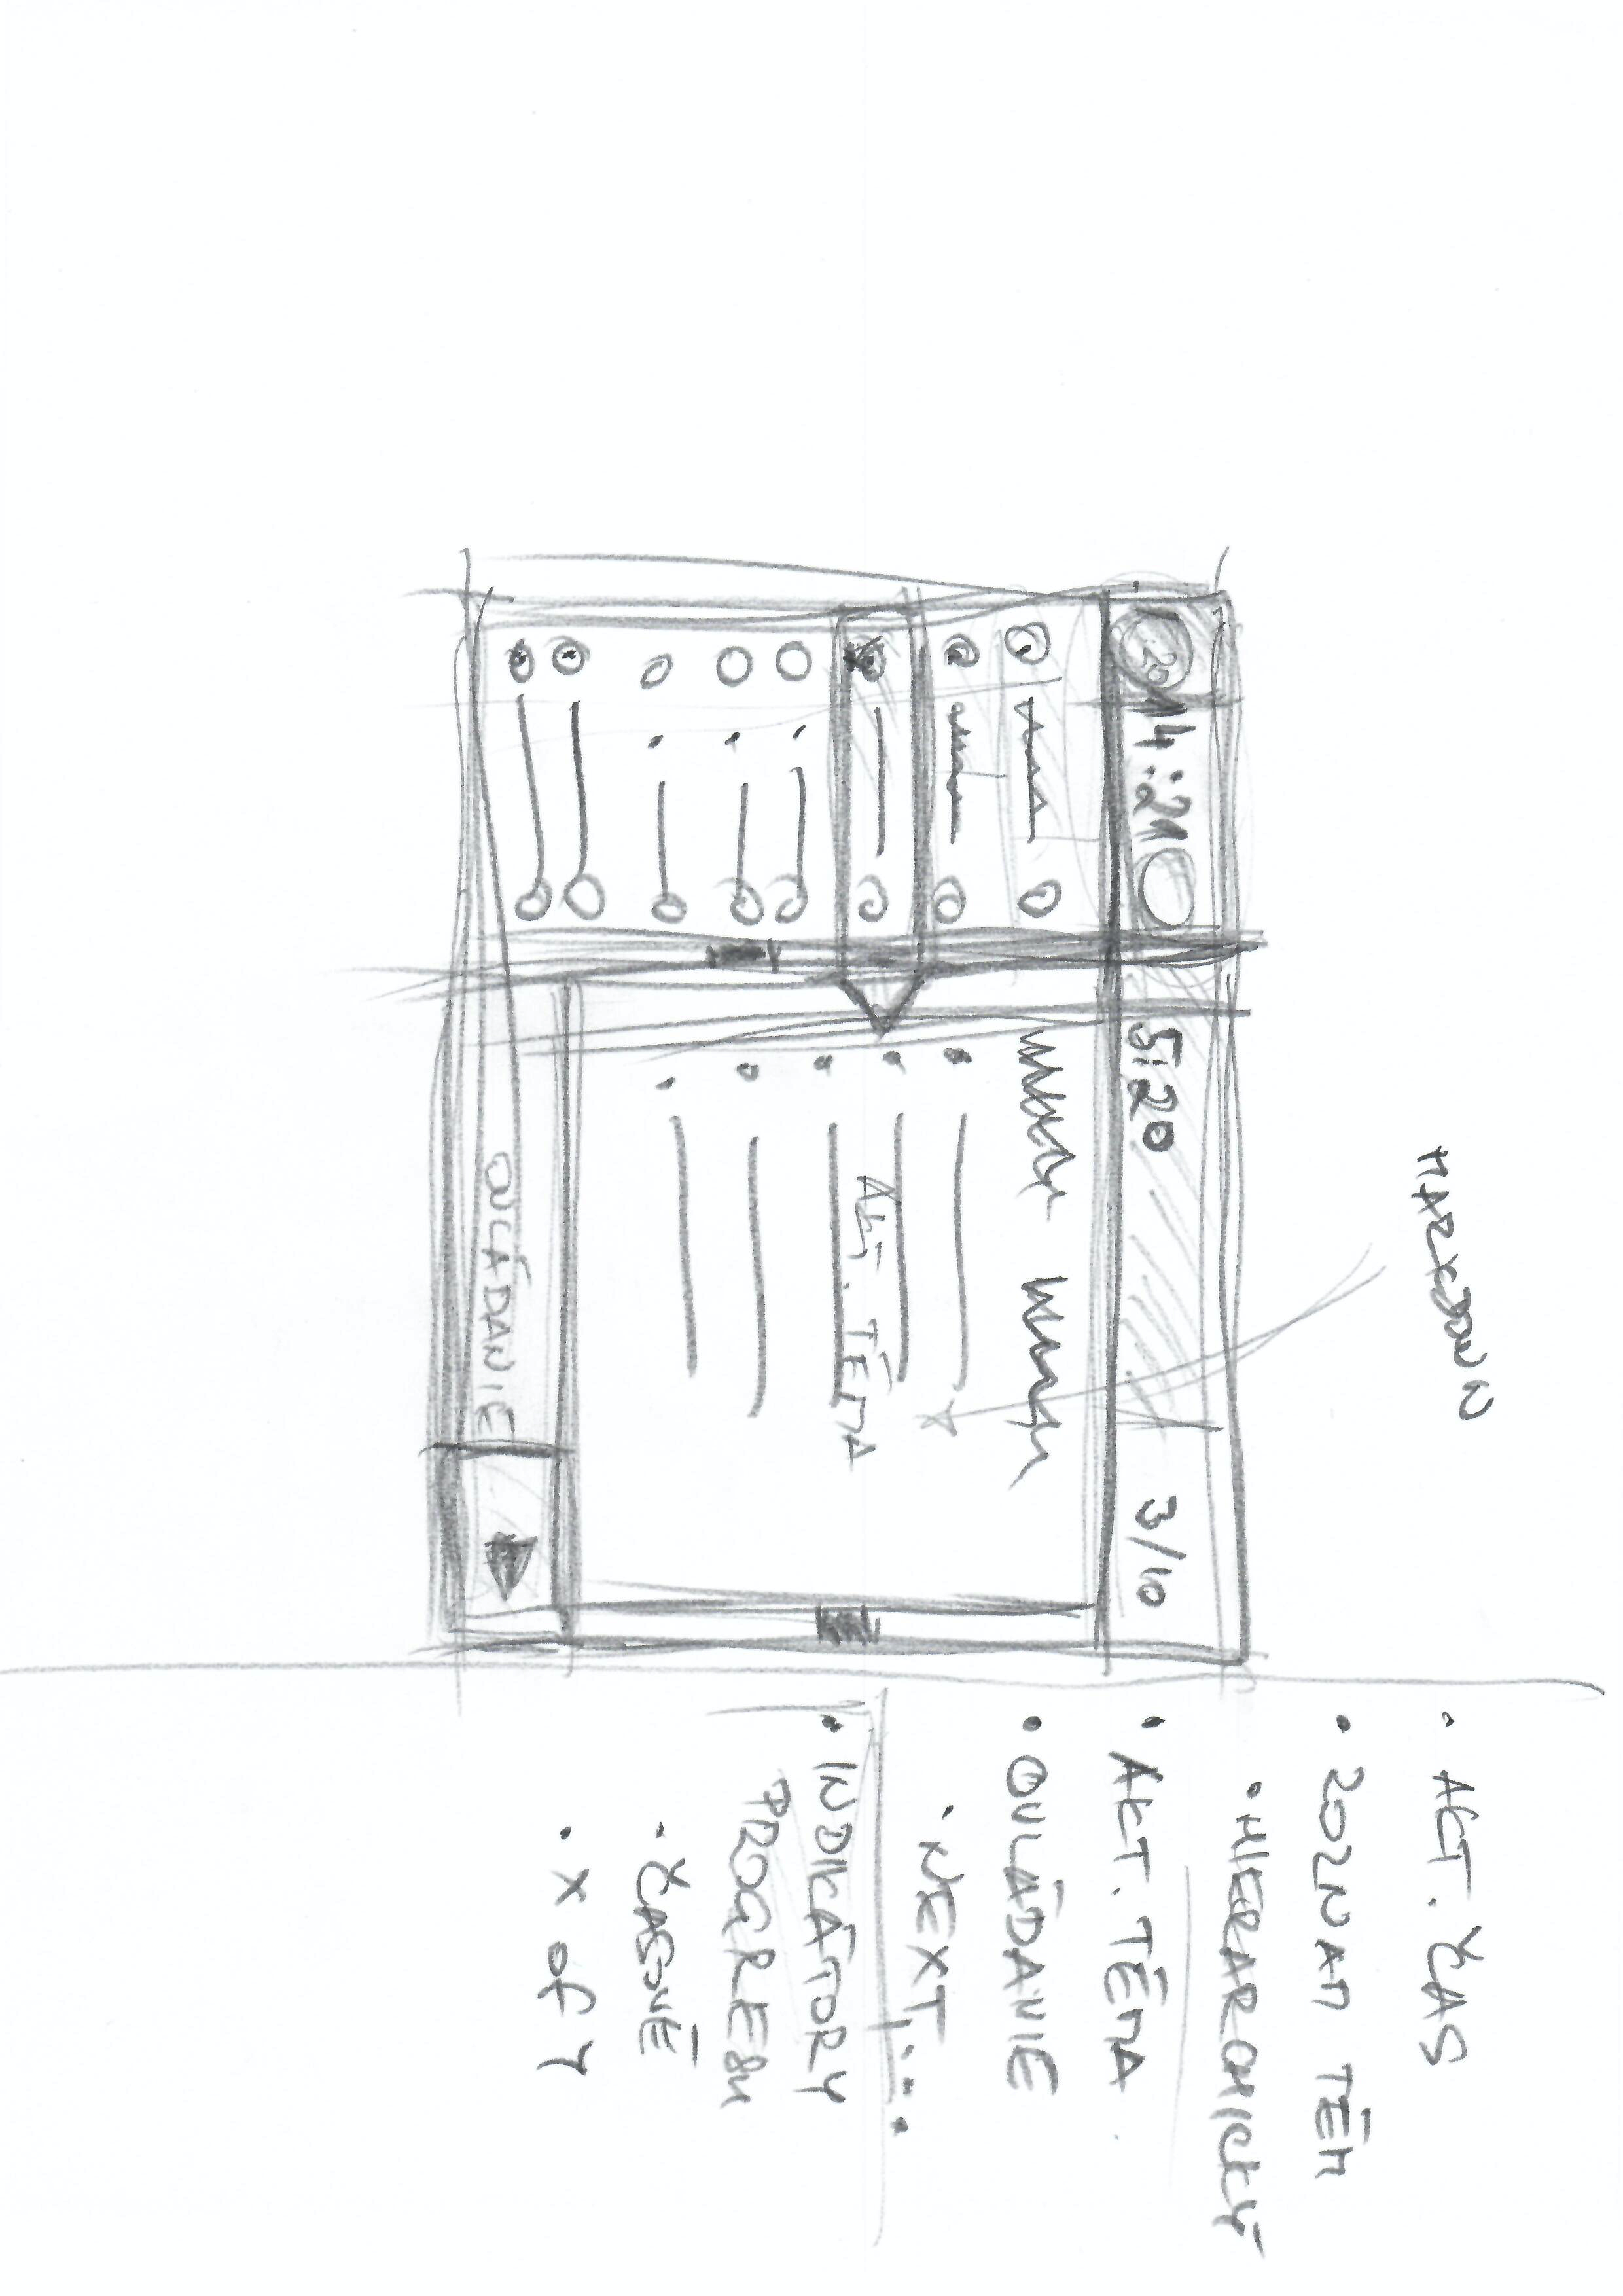 14:21
5:20
3/10
AKT. TÉMA
OVLÁDANIE
MARKDOWN
• AKT. ČAS
• ZOZNAM TÉM
• HIERARCHICKÝ
• AKT. TÉMA
• OVLÁDANIE
• NEXT...
• INDIKÁTORY
PROGRESU
• ČASOVÉ
• X of Y